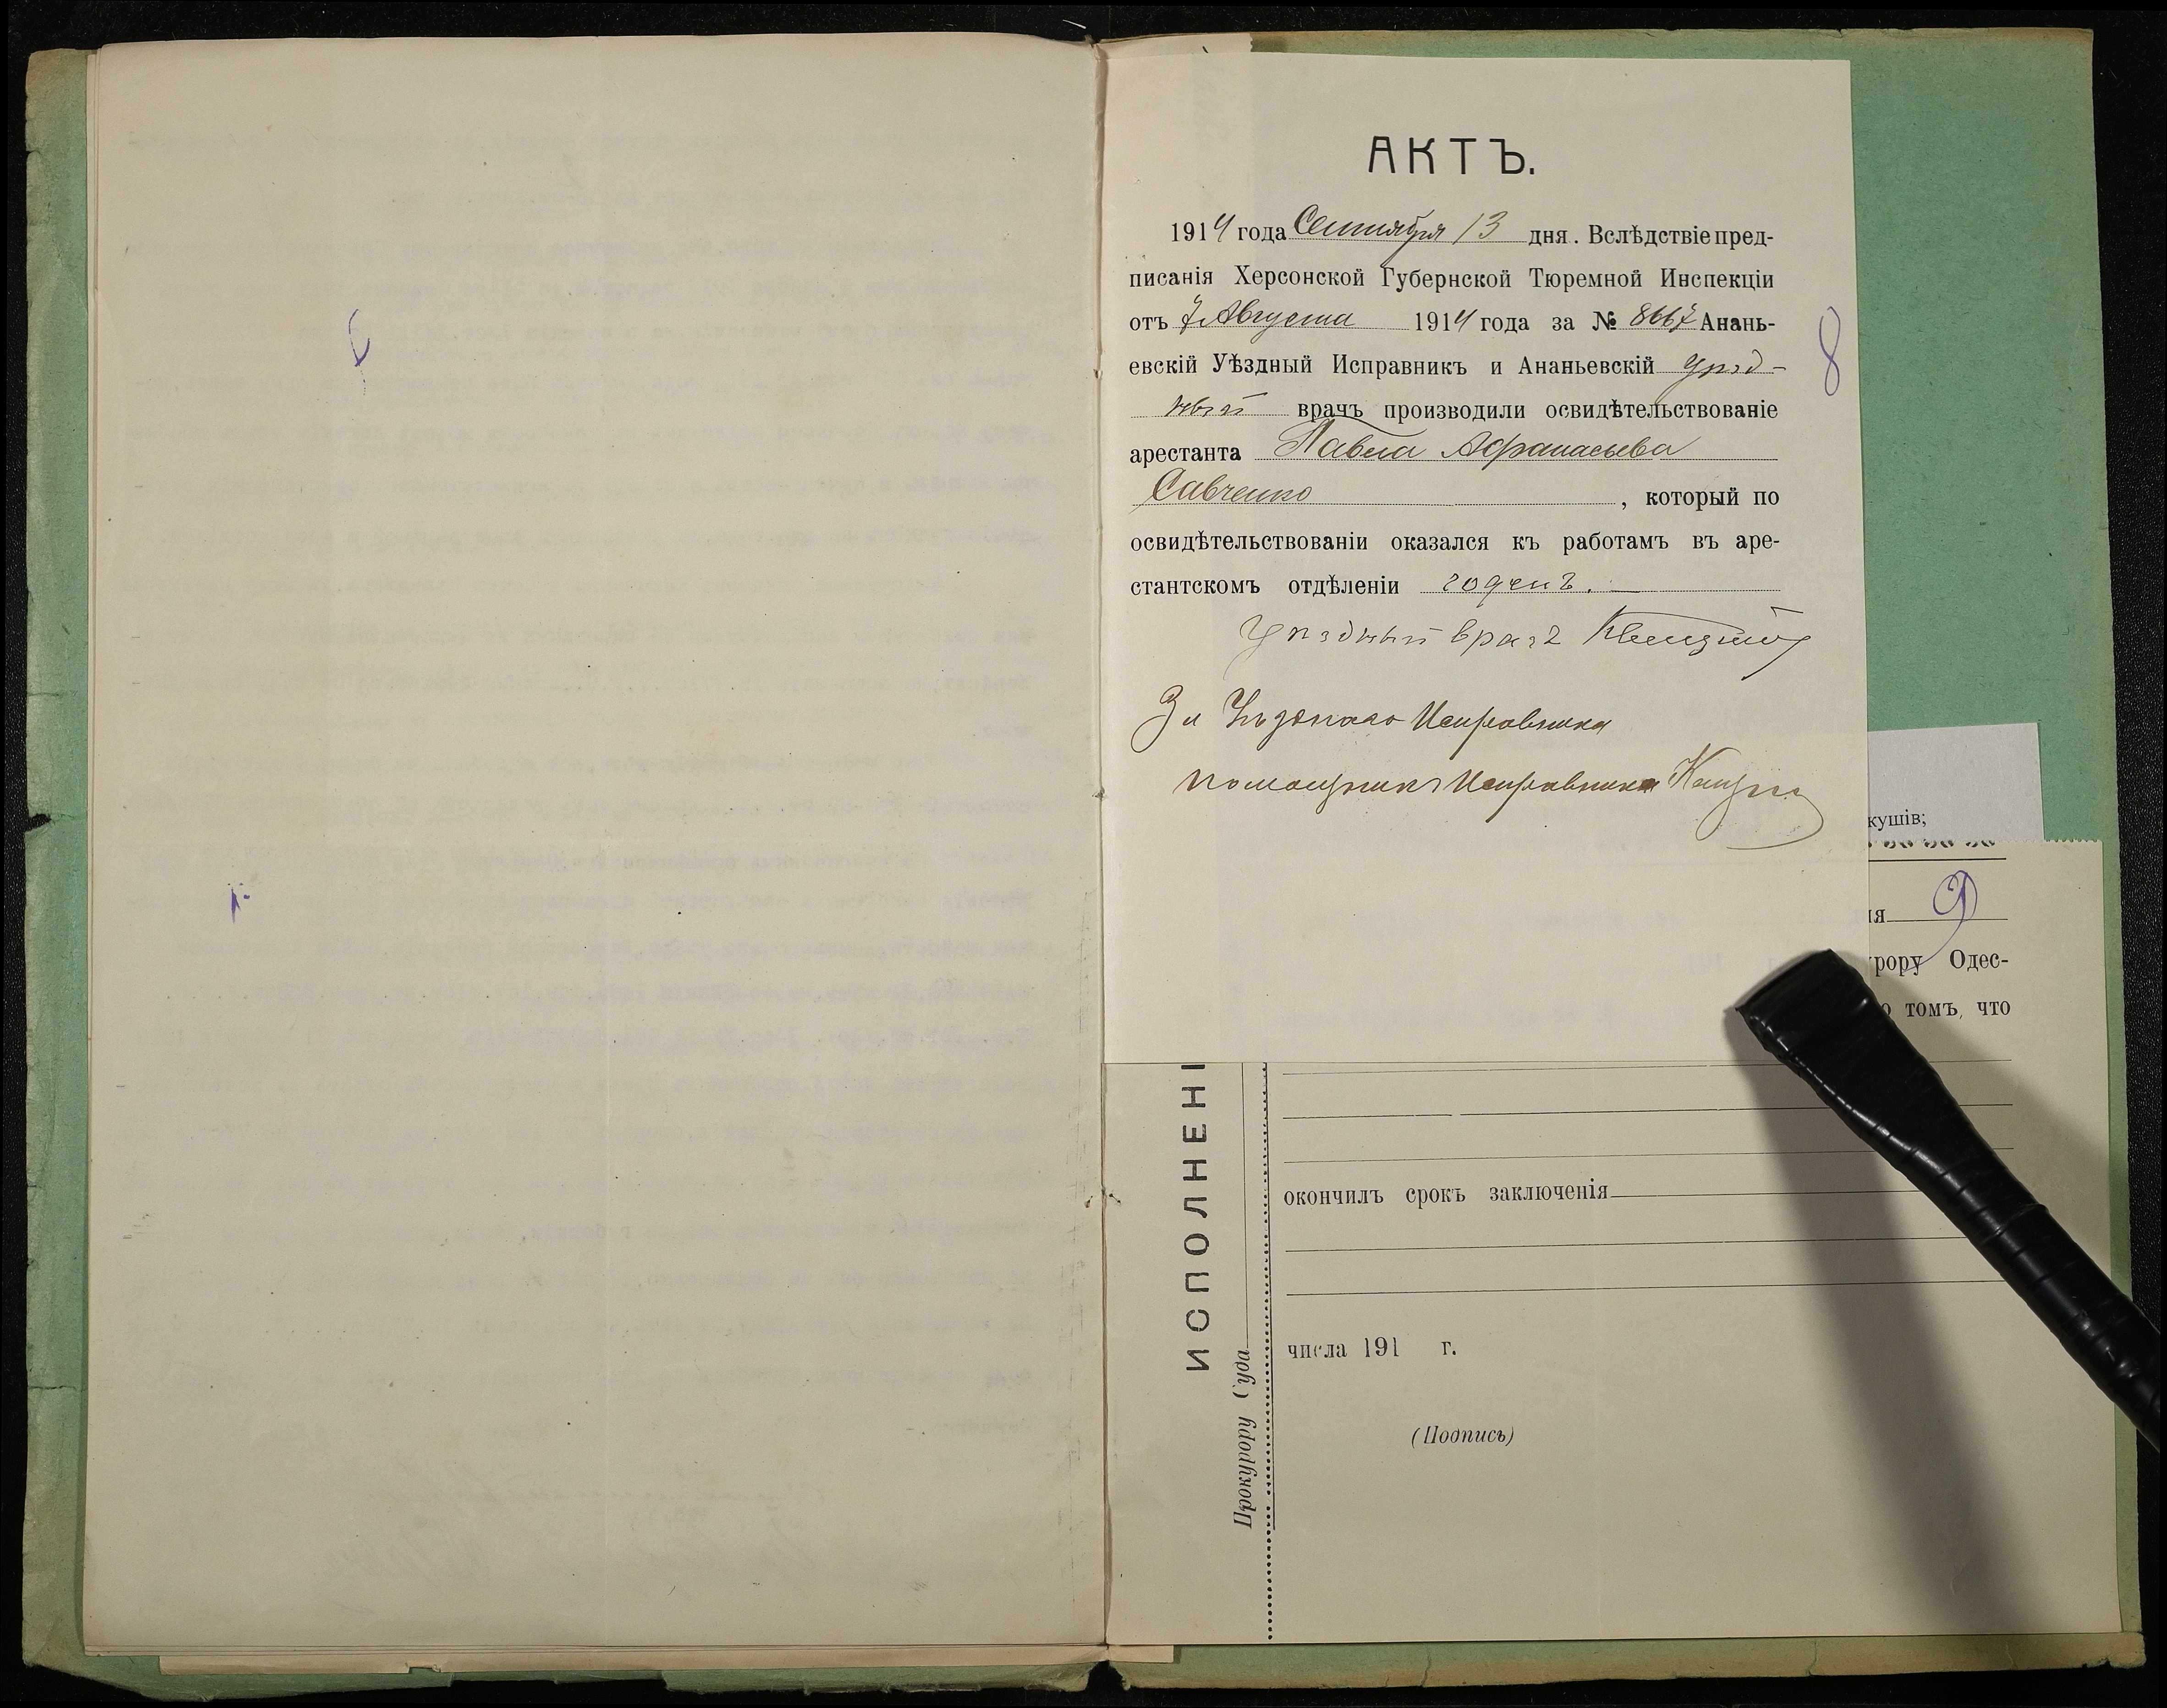 АКТЪ.
1914 года Сентября 13 дня. Вслѣдствіе пред-
писанія Херсонской Губернской Тюремной Инспекціи
отъ 7 Августа 1914 года за № 8667 Анань-
евскій Уѣздный Исправникъ и Ананьевскій уѣзд-
ный врачъ производили освидѣтельствованіе
арестанта Павла Афанасьева
Савченко, который по
освидѣтельствованіи оказался къ работамъ въ аре-
стантскомъ отдѣленіи годенъ.
Уѣздный врачъ
За Уѣзднаго Исправника
Помощникъ Исправника
8
кушів;
ія 9
рору Одес-
о томъ, что
окончилъ срокъ заключенія
числа 191 г.
(Подпись)
ИСПОЛНЕНІ
Прокурору Суда